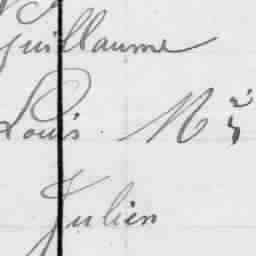 Guillaume
Louis M
Julien